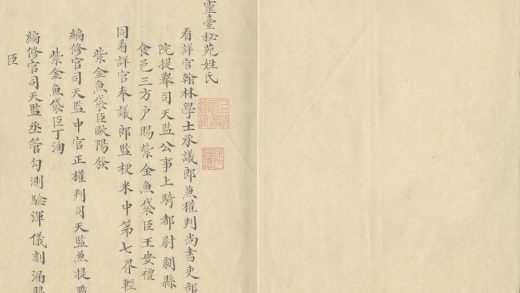 靈臺秘苑姓氏
看詳官翰林學士承議郎兼權判尚書吏部
院提舉司天監公事上騎都尉開縣
食邑三方户賜紫金魚袋臣王安禮
同看詳官奉議郎監梗米中第七界輕
紫金魚袋臣歐陽發
編修官司天監中官正權判司天監兼提點
紫金魚袋臣丁洵
編修官司天監丞管勾測驗渾儀刻漏
臣